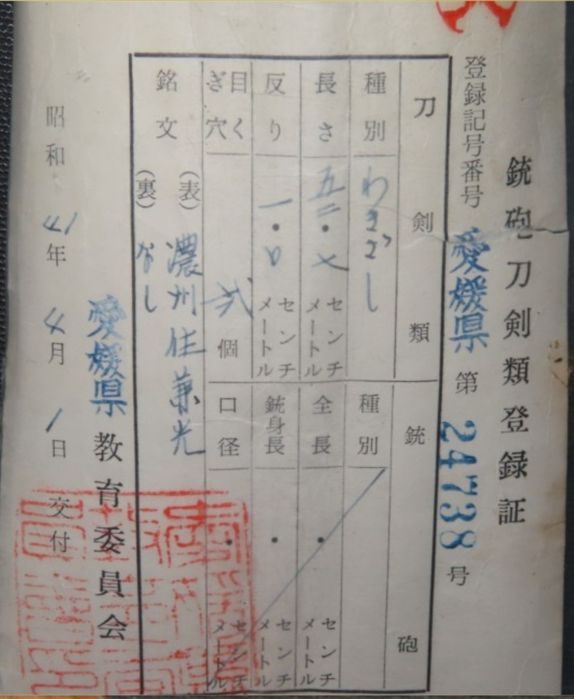 銃砲刀剣類登録証
登録記号番号 愛媛県 第 24738 号
刀剣類
種別 わきざし
長さ 五二・七 センチメートル
反り 一・〇 センチメートル
目くぎ穴 弐 個
銘文 (表) 濃州住兼光
(裏) なし
銃砲
種別
全長 ・ センチメートル
銃身長 ・ センチメートル
口径 ・ センチメートル
昭和 41 年 4 月 1 日 交付
愛媛県 教育委員会